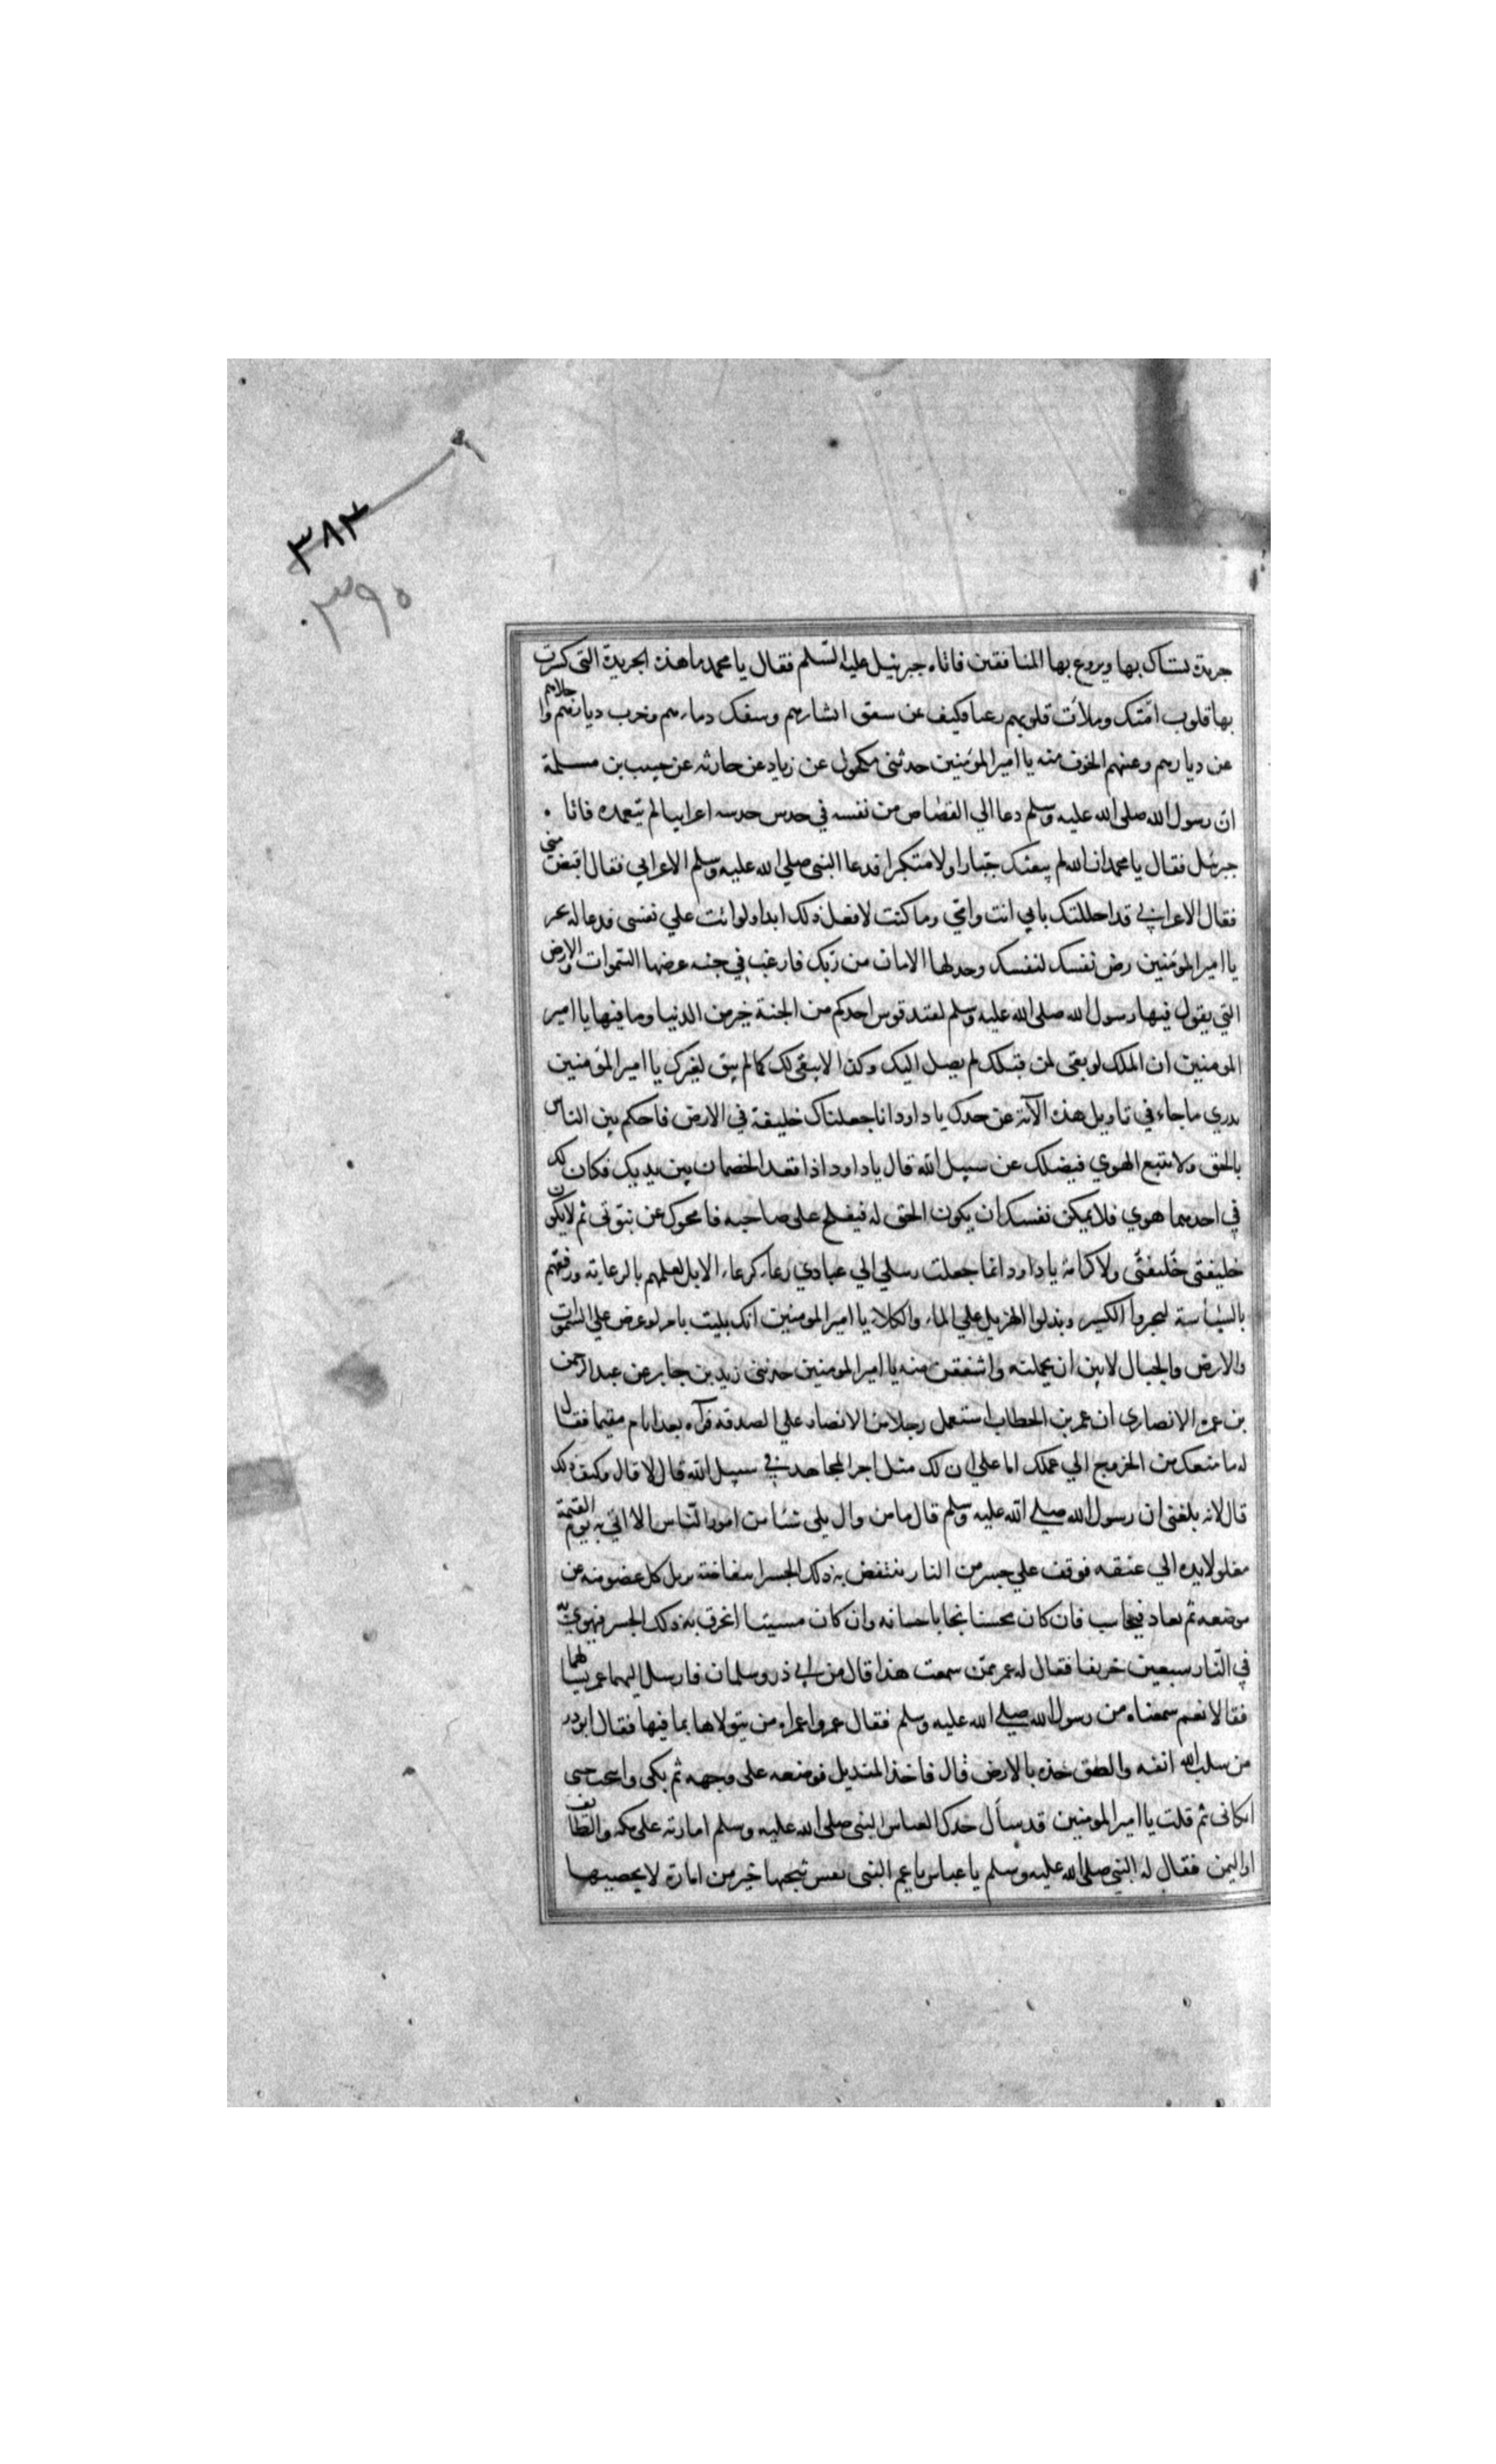 ٣٨٣
٣٩٥
جريدة يستاك بها ويروع بها المنافقين فاتاه جبرئيل عليه السّلم فقال يا محمد ما هذه الجريدة التى كسرت
بها قلوب امّتك وملأت قلوبهم رعبا فكيف عن سعق ابشارهم وسفك دماءهم وخرب ديارهم واجلاهم
عن ديارهم وعنهم الخوف منه يا امير المؤمنين حدثنى مكحول عن زياد عن حارثه عن حبيب بن مسلمة
ان رسول الله صلى الله عليه وسلم دعا الي القصاص من نفسه في حدس حدسه اعرابيا لم يتعمده فاتا
جبرئيل فقال يا محمد ان الله لم يبعثك جبّارا ولا متكبرا فدعا النبى صلي الله عليه وسلم الاعرابي فقال اقتض منى
فقال الاعرابي قد احللتك بابي انت وامّي وما كنت لافعل ذلك ابدا ولو اتت علي نفسى فدعا له
يا امير المومنين رض نفسك لنفسك وخذ لها الامان من ربّك فارغب في جنه عرضها السّموات والارض
التي يقول فيها رسول الله صلى الله عليه وسلم لقند قوس احدكم من الجنة خير من الدنيا وما فيها يا امير
المومنين ان الملك لو بقى لمن قبلك لم يصل اليك وكذا لا يبقى لك كما لم يبق لغيرك يا امير المؤمنين
تدري ما جاء في تاويل هذه الآية عن جدك يا داود انا جعلناك خليفة في الارض فاحكم بين الناس
بالحق ولا تتبع الهوي فيضلك عن سبيل الله قال يا داود اذا قعد الخصمان بين يديك فكان لك
في احدهما هوي فلا يمكن نفسك ان يكون الحق له فيفلح على صاحبه فامحوك عن نبّوتى ثم لايكون
خليفتى خليفتى ولا كرامة يا داود انما جعلت رسلي الي عبادي رعاء كرعاء الابل لعلمهم بالرعاية ورفقهم
بالسّياسة ليجبروا الكسير ويدلوا الهزيل علي الماء والكلاء يا امير المومنين انك بليت بامر لو عرض علي السّموات
والارض والجبال لابين ان يحملنه واشفقن منه يا امير المومنين حدثنى زيد بن جابر عن عبد الرحمن
بن عمره الانصارى ان عمر بن الخطاب استعمل رجلا من الانصار علي الصدقه فرآه بعد ايام مقيما فقال
له ما منعك من الخروج الي عملك اما علمت ان لك مثل اجر المجاهد في سبيل الله قال لا قال وكيف ذلك
قال لانه بلغنى ان رسول الله صلي الله عليه وسلم قال ما من وال يلى شئا من امور النّاس الا اتي به يوم القيمة
مغلولا يده الي عنقه فوقف علي جسر من النار ينتفض به ذلك الجسر انتفاضة يزيل كل عضو منه عن
موضعه ثم يعاد فيحاسب فان كان محسنا نجا باحسانه وان كان مسيئا انخرق به ذلك الجسر فيهوي به
في النّار سبعين خريفا فقال له عمر ممّن سمعت هذا قال من ابي ذر وسلمان فارسل اليهما عمر يسالهما
فقالا نعم سمعناه من رسول الله صلي الله عليه وسلم فقال عمر واعمراه من يتولاها بما فيها فقال ابوذر
من سلب الله انفه والصق خده بالارض قال فاخذ المنديل فوضعه على وجهه ثم بكى وانتحب حتى
ابكانى ثم قلت يا امير المومنين قد سأل جدك العباس النبى صلى الله عليه وسلم امارته على مكه والطائف
او اليمن فقال له النبي صلى الله عليه وسلم يا عباس يا عم النبى نفس تنجيها خير من امارة لا تحصيها